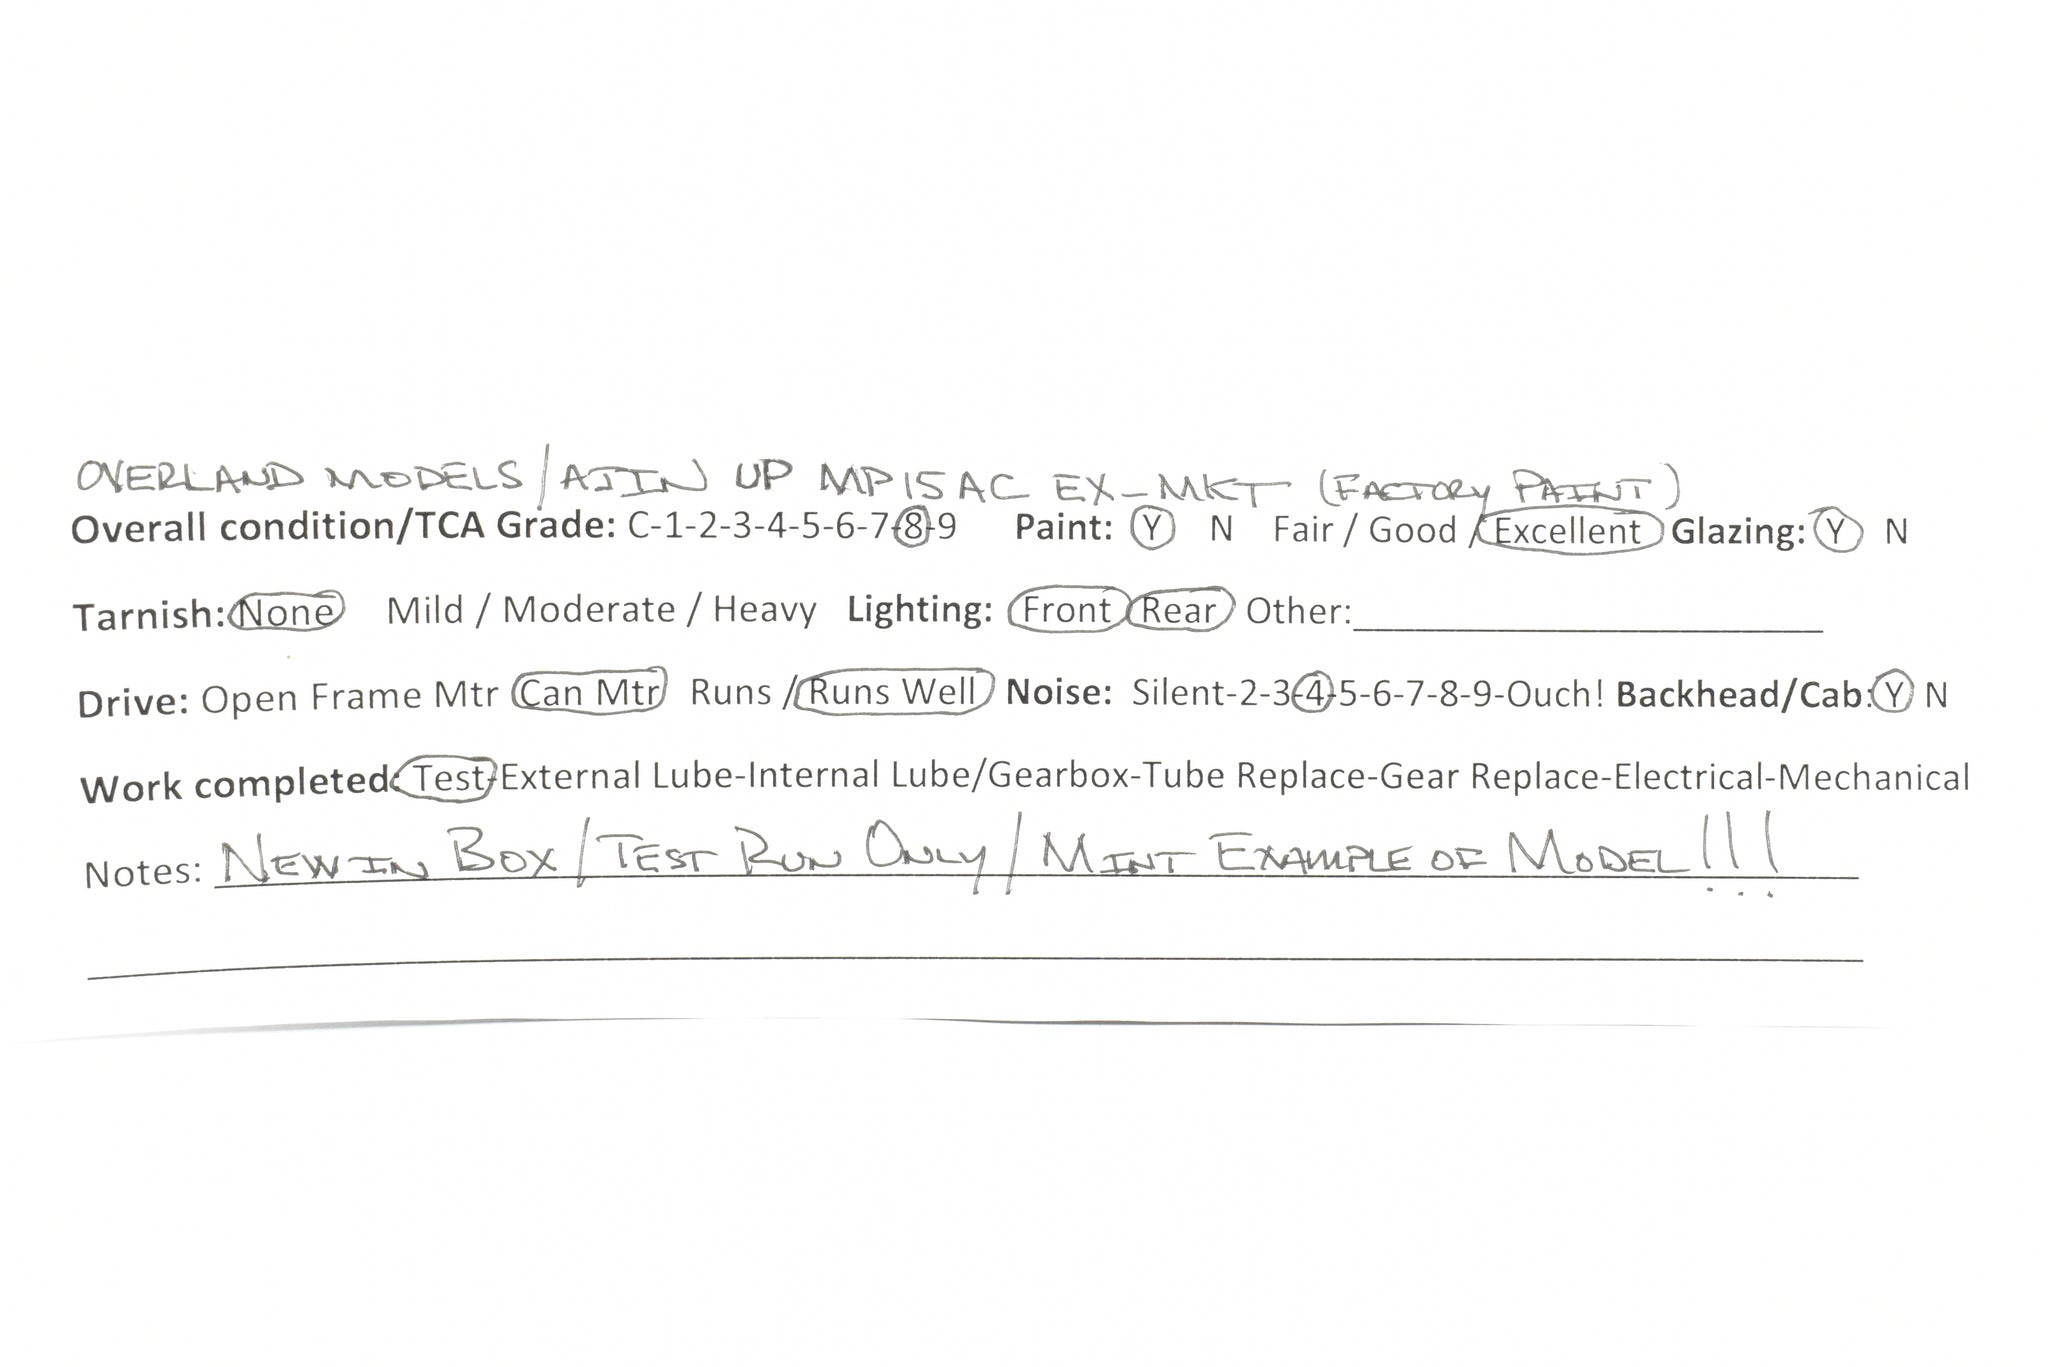 OVERLAND MODELS/AJIN UP MP15AC EX-MKT (FACTORY PAINT)
Overall condition/TCA Grade: C-1-2-3-4-5-6-7-8-9 Paint: Y N Fair / Good / Excellent Glazing: Y N
Tarnish: None Mild / Moderate / Heavy Lighting: Front Rear Other:
Drive: Open Frame Mtr Can Mtr Runs / Runs Well Noise: Silent-2-3-4-5-6-7-8-9-Ouch! Backhead/Cab: Y N
Work completed: Test-External Lube-Internal Lube/Gearbox-Tube Replace-Gear Replace-Electrical-Mechanical
Notes: NEW IN BOX/TEST RUN ONLY/MINT EXAMPLE OF MODEL!!!